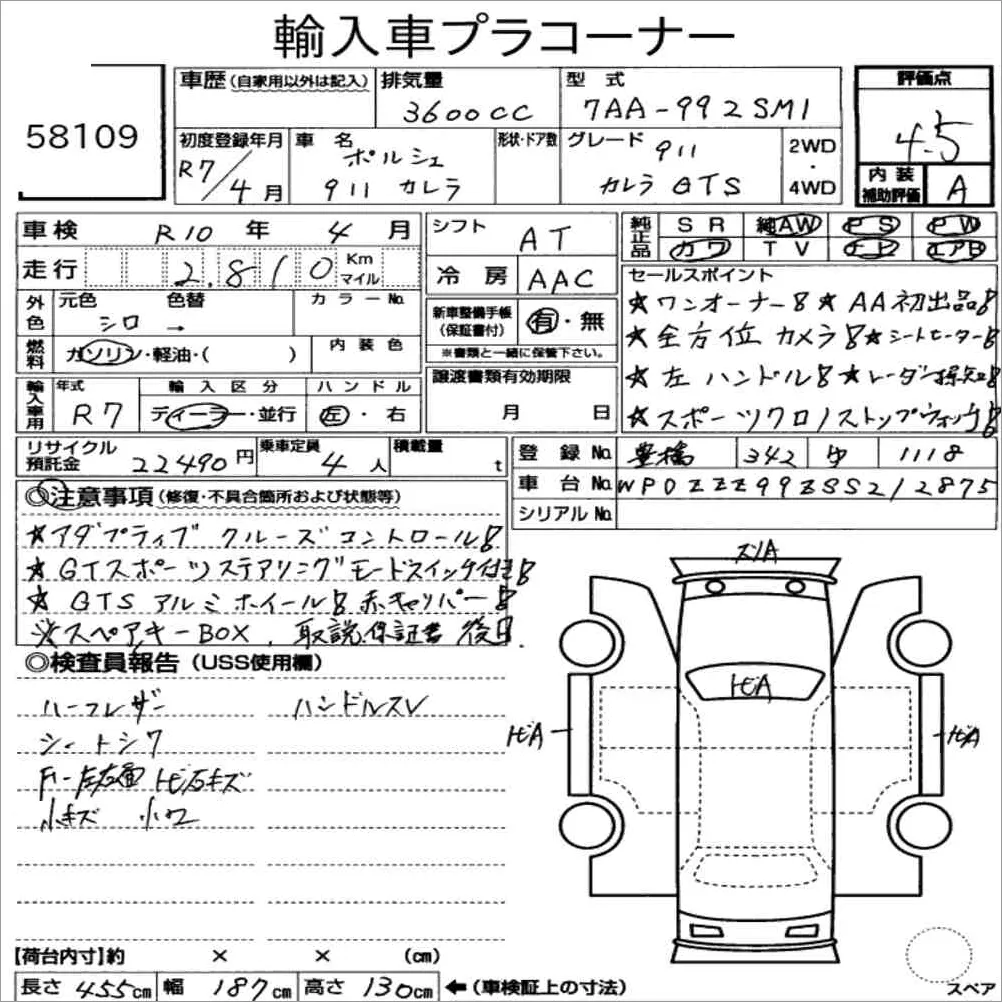 輸入車プラコーナー
58109
車歴(自家用以外は記入)
排気量 3600CC
型式 7AA-992SM1
評価点 4.5
初度登録年月 R7/4月
車名 ポルシェ 911 カレラ
形状・ドア数
グレード 911 カレラ GTS
2WD・4WD
内装補助評価 A
車検 R10年 4月
走行 2,810 Km マイル
外色 元色 シロ → 色替
カラーNo.
燃料 ガソリン・軽油・( )
内装色
輸入車用 年式 R7
輸入区分 ディーラー・並行
ハンドル 左・右
シフト AT
冷房 AAC
新車整備手帳(保証書付) 有・無
※書類と一緒に保管下さい。
譲渡書類有効期限 月 日
純正品 SR 純AW PS PW
カワ TV エアB
セールスポイント
★ワンオーナー!! ★AA初出品!!
★全方位カメラ!! ★シートヒーター!!
★左ハンドル!! ★レーダー探知!!
★スポーツクロノストップウォッチ!!
リサイクル預託金 22490円
乗車定員 4人
積載量 t
登録No. 豊橋 342 ゆ 1118
車台No. WP0ZZZ99ZSS212875
シリアルNo.
◎注意事項(修復・不具合箇所および状態等)
★アダプティブクルーズコントロール!!
★GTスポーツステアリングモードスイッチ付き!!
★GTSアルミホイール!! 赤キャリパー!!
※スペアキーBOX、取説、保証書 後日.
◎検査員報告(USS使用欄)
ハーフレザー ハンドルスレ
シートシワ
F-左右面 トビ石キズ
小キズ 小ワ
スリA
トビA
トビA
トビA
【荷台内寸】約 × × (cm)
長さ 455cm 幅 187cm 高さ 130cm ←(車検証上の寸法)
スペア